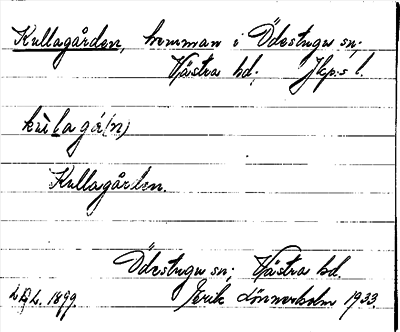 Kullagården, hemman i Ödestugu sn;
Västra hd; Jkp:s l.
kùlagá(n)
Kullagården.
Ödestugu sn; Västra hd.
1899. Erik Lönnerholm 1933.